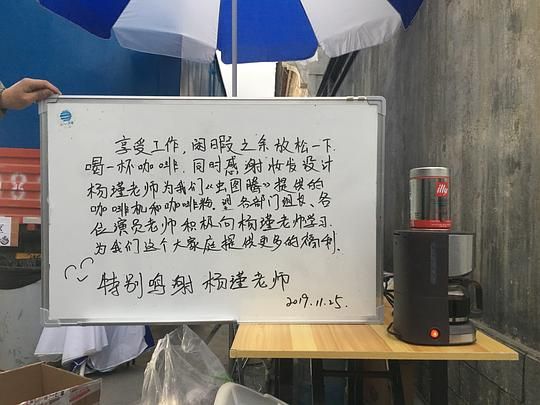 享受工作，闲暇之余放松一下
喝一杯咖啡，同时感谢妆发设计
杨瑾老师为我们《虫图腾》提供的
咖啡机和咖啡粉，望各部门组长、各
位演员老师积极向杨瑾老师学习
为我们这个大家庭提供更多的福利.
特别鸣谢 杨瑾老师
2019.11.25.
illy